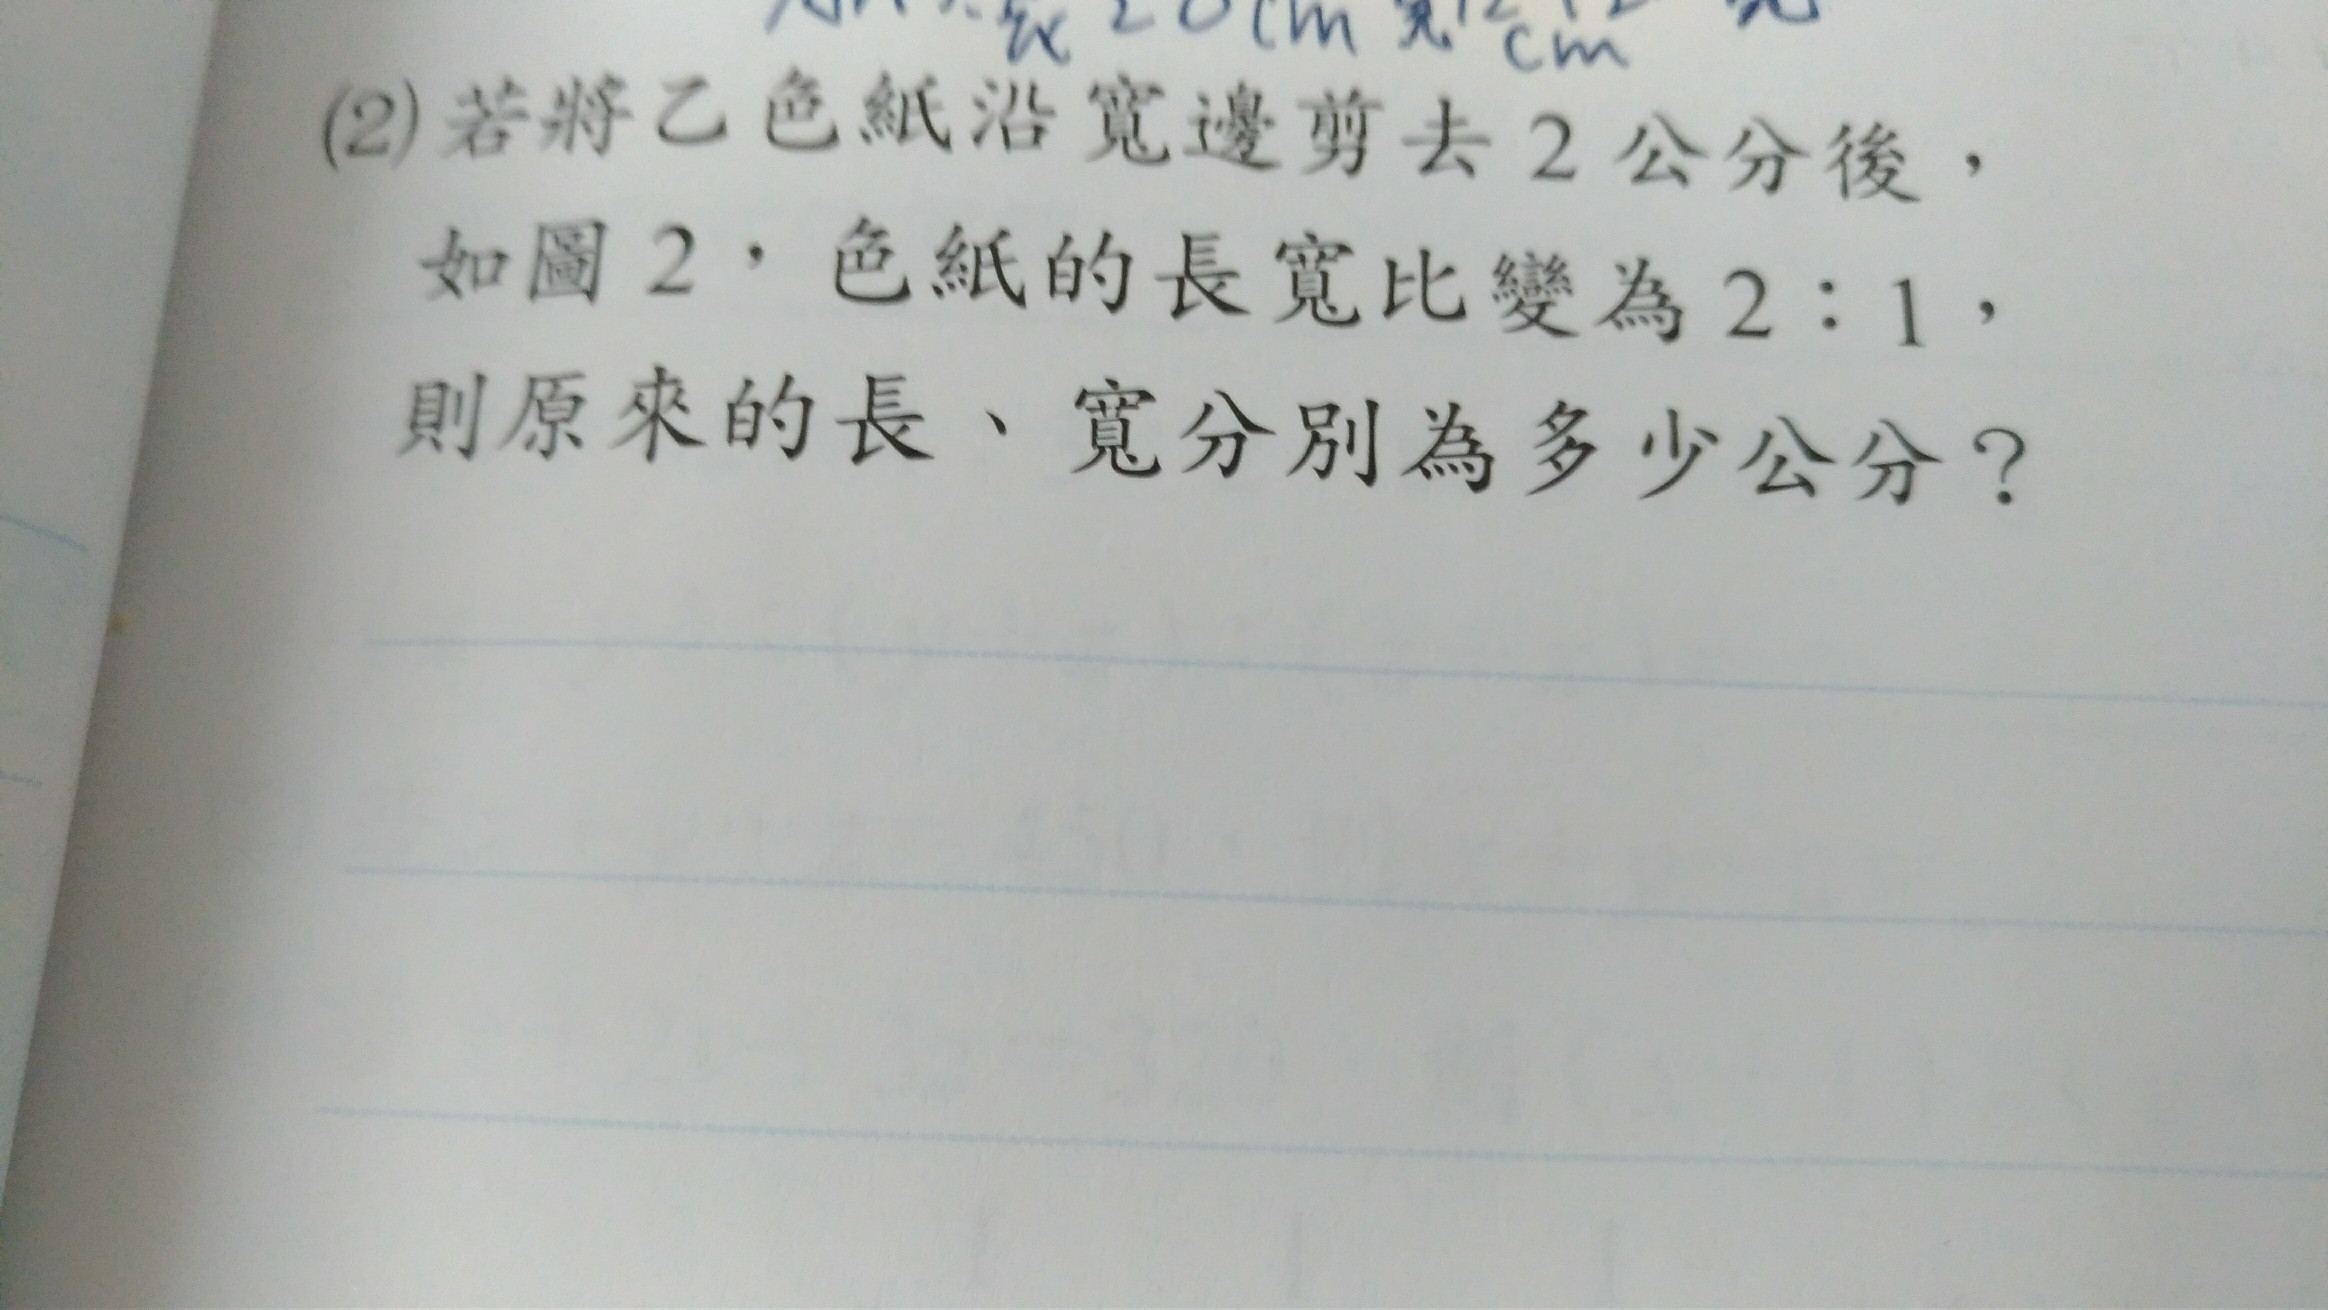 長20cm 寬12
cm
(2)若將乙色紙沿寬邊剪去2公分後，
如圖2，色紙的長寬比變為2：1，
則原來的長、寬分別為多少公分？